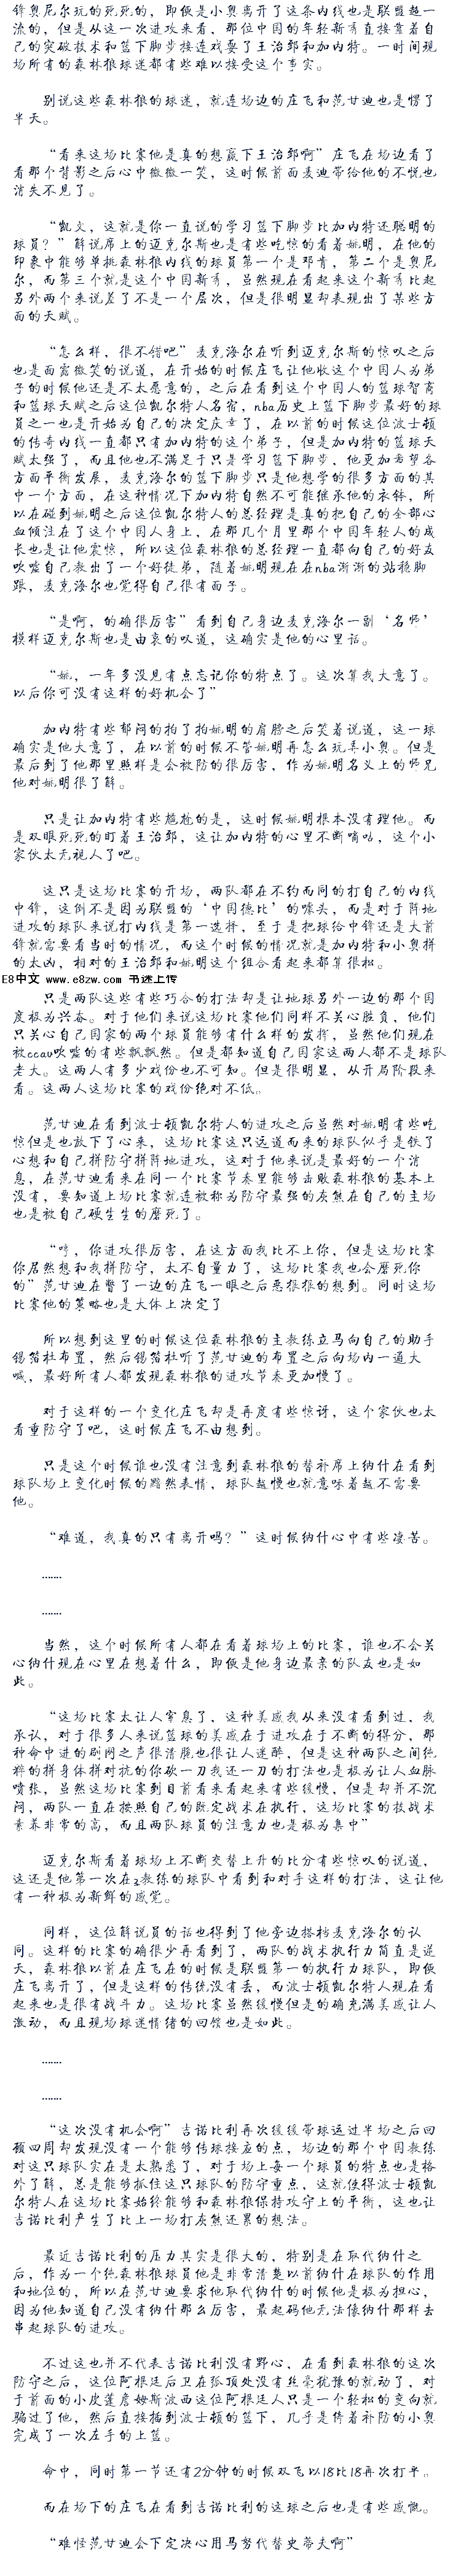 锋奥尼尔玩的死死的，即使是小奥离开了这条内线也是联盟超一
流的，但是从这一次进攻来看，那位中国的年轻新秀直接靠着自
己的突破技术和篮下脚步接连戏耍了王治郅和加内特。一时间现
场所有的森林狼球迷都有些难以接受这个事实。
别说这些森林狼的球迷，就连场边的庄飞和范甘迪也是愣了
半天。
“看来这场比赛他是真的想赢下王治郅啊”庄飞在场边看了
看那个背影之后心中微微一笑，这时候前面麦迪带给他的不悦也
消失不见了。
“凯文，这就是你一直说的学习篮下脚步比加内特还聪明的
球员？”解说席上的迈克尔斯也是有些吃惊的看着姚明，在他的
印象中能够单挑森林狼内线的球员第一个是邓肯，第二个是奥尼
尔，而第三个就是这个中国新秀，虽然现在看起来这个新秀比起
另外两个来说差了不是一个层次，但是很明显却表现出了某些方
面的天赋。
“怎么样，很不错吧”麦克海尔在听到迈克尔斯的惊叹之后
也是面露微笑的说道，在开始的时候庄飞让他收这个中国人为弟
子的时候他还是不太愿意的，之后在看到这个中国人的篮球智商
和篮球天赋之后这位凯尔特人名宿，nba历史上篮下脚步最好的球
员之一也是开始为自己的决定庆幸了，在以前的时候这位波士顿
的传奇内线一直都只有加内特的这个弟子，但是加内特的篮球天
赋太强了，而且他也不满足于只是学习篮下脚步，他更加希望各
方面平衡发展，麦克海尔的篮下脚步只是他想学的很多方面的其
中一个方面，在这种情况下加内特自然不可能继承他的衣钵，所
以在碰到姚明之后这位凯尔特人的总经理是真的把自己的全部心
血倾注在了这个中国人身上，在那几个月里那个中国年轻人的成
长也是让他震惊，所以这位森林狼的总经理一直都向自己的好友
吹嘘自己教出了一个好徒弟，随着姚明现在在nba渐渐的站稳脚
跟，麦克海尔也觉得自己很有面子。
“是啊，的确很厉害”看到自己身边麦克海尔一副‘名师’
模样迈克尔斯也是由衷的叹道，这确实是他的心里话。
“姚，一年多没见有点忘记你的特点了。这次算我大意了。
以后你可没有这样的好机会了”
加内特有些郁闷的拍了拍姚明的肩膀之后笑着说道，这一球
确实是他大意了，在以前的时候不管姚明再怎么玩弄小奥。但是
最后到了他那里照样是会被防的很厉害，作为姚明名义上的师兄
他对姚明很了解。
只是让加内特有些尴尬的是，这时候姚明根本没有理他。而
是双眼死死的盯着王治郅，这让加内特的心里不断嘀咕，这个小
家伙太无视人了吧。
这只是这场比赛的开场，两队都在不约而同的打自己的内线
中锋，这倒不是因为联盟的‘中国德比’的噱头，而是对于阵地
进攻的球队来说打内线是第一选择，至于是把球给中锋还是大前
锋就需要看当时的情况，而这个时候的情况就是加内特和小奥拼
的太凶，相对的王治郅和姚明这个组合看起来都算很松。
E8中文 www.e8zw.com 书迷上传
只是两队这些有些巧合的打法却是让地球另外一边的那个国
度极为兴奋。对于他们来说这场比赛他们同样不关心胜负，他们
只关心自己国家的两个球员能够有什么样的发挥，虽然他们现在
被ccav吹嘘的有些飘飘然。但是都知道自己国家这两人都不是球队
老大。这两人有多少戏份也不可知。但是很明显，从开局阶段来
看。这两人这场比赛的戏份绝对不低。
范甘迪在看到波士顿凯尔特人的进攻之后虽然对姚明有些吃
惊但是也放下了心来，这场比赛这只远道而来的球队似乎是铁了
心想和自己拼防守拼阵地进攻，这对于他来说是最好的一个消
息，在范甘迪看来在同一个比赛节奏里能够击败森林狼的基本上
没有，要知道上场比赛就连被称为防守最强的灰熊在自己的主场
也是被自己硬生生的磨死了。
“哼，你进攻很厉害，在这方面我比不上你，但是这场比赛
你居然想和我拼防守，太不自量力了，这场比赛我也会磨死你
的”范甘迪在瞥了一边的庄飞一眼之后恶狠狠的想到。同时这场
比赛他的策略也是大体上决定了
所以想到这里的时候这位森林狼的主教练立马向自己的助手
锡伯杜布置，然后锡伯杜听了范甘迪的布置之后向场内一通大
喊，最好所有人都发现森林狼的进攻节奏更加慢了。
对于这样的一个变化庄飞却是再度有些惊讶，这个家伙也太
看重防守了吧，这时候庄飞不由想到。
只是这个时候谁也没有注意到森林狼的替补席上纳什在看到
球队场上变化时候的黯然表情，球队越慢也就意味着越不需要
他。
“难道，我真的只有离开吗？”这时候纳什心中有些凄苦。
……
……
当然，这个时候所有人都在看着球场上的比赛，谁也不会关
心纳什现在心里在想着什么，即使是他身边最亲的队友也是如
此。
“这场比赛太让人窒息了，这种美感我从来没有看到过，我
承认，对于很多人来说篮球的美感在于进攻在于不断的得分，那
种命中进的刷网之声很清脆也很让人迷醉，但是这种两队之间纯
粹的拼身体拼对抗的你砍一刀我还一刀的打法也是极为让人血脉
喷张，虽然这场比赛到目前看来看起来有些缓慢，但是却并不沉
闷，两队一直在按照自己的既定战术在执行，这场比赛的技战术
素养非常的高，而且两队球员的注意力也是极为集中”
迈克尔斯看着球场上不断交替上升的比分有些惊叹的说道，
这还是他第一次在z教练的球队中看到和对手这样的打法，这让他
有一种极为新鲜的感觉。
同样，这位解说员的话也得到了他旁边搭档麦克海尔的认
同。这样的比赛的确很少再看到了，两队的战术执行力简直是逆
天，森林狼以前在庄飞在的时候是联盟第一的执行力球队，即使
庄飞离开了，但是这样的传统没有丢，而波士顿凯尔特人现在看
起来也是很有战斗力。这场比赛虽然缓慢但是的确充满美感让人
激动，而且现场球迷情绪的回馈也是如此。
……
……
“这次没有机会啊”吉诺比利再次缓缓带球运过半场之后回
顾四周却发现没有一个能够传球接应的点，场边的那个中国教练
对这只球队实在是太熟悉了，对于场上每一个球员的特点也是格
外了解，总是能够抓住这只球队的防守重点，这就使得波士顿凯
尔特人在这场比赛始终能够和森林狼保持攻守上的平衡，这也让
吉诺比利产生了比上一场打灰熊还累的想法。
最近吉诺比利的压力其实是很大的，特别是在取代纳什之
后，作为一个纯森林狼球员他是非常清楚以前纳什在球队的作用
和地位的，所以在范甘迪要求他取代纳什的时候他是极为担心，
因为他知道自己没有纳什那么厉害，最起码他无法像纳什那样去
串起球队的进攻。
不过这也并不代表吉诺比利没有野心，在看到森林狼的这次
防守之后，这位阿根廷后卫在弧顶处没有丝毫犹豫的就动了，对
于前面的小皮蓬詹姆斯波西这位阿根廷人只是一个轻松的变向就
骗过了他，然后直接插到波士顿的篮下，几乎是倚着补防的小奥
完成了一次左手的上篮。
命中，同时第一节还有2分钟的时候双飞以18比18再次打平。
而在场下的庄飞在看到吉诺比利的这球之后也是有些感慨。
“难怪范甘迪会下定决心用马努代替史蒂夫啊”